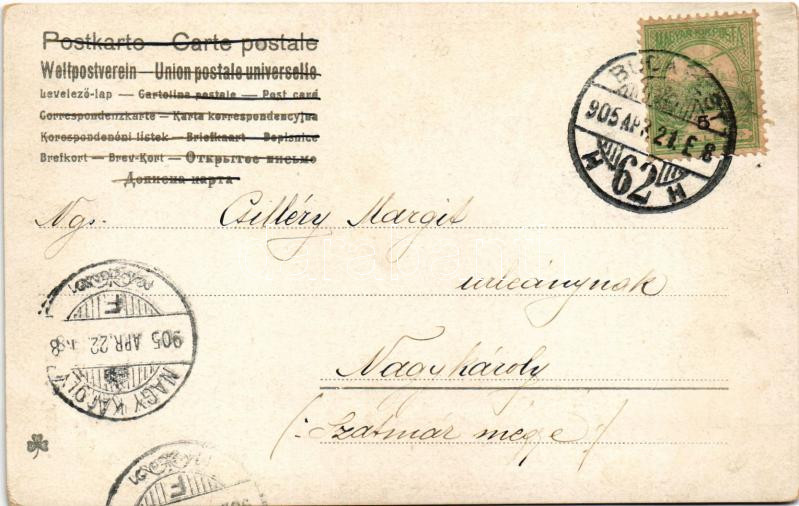 Postkarte — Carte postale
Weltpostverein — Union postale universelle
Levelező-lap — Cartolina postale — Post card
Correspondenzkarte — Karta korrespondencyjna
Korespondenční listek — Briefkaart — Dopisnice
Brefkort — Brev-Kort — Открытое письмо
Дописна карта
MAGYAR KIR. POSTA
BUDAPEST
905 APR. 21. E. 8
H 62 H
Ngs. Csilléry Margit
urleánynak
Nagykároly
(: Szatmár megye :)
905 APR. 22
NAGY KÁROLY
F
F